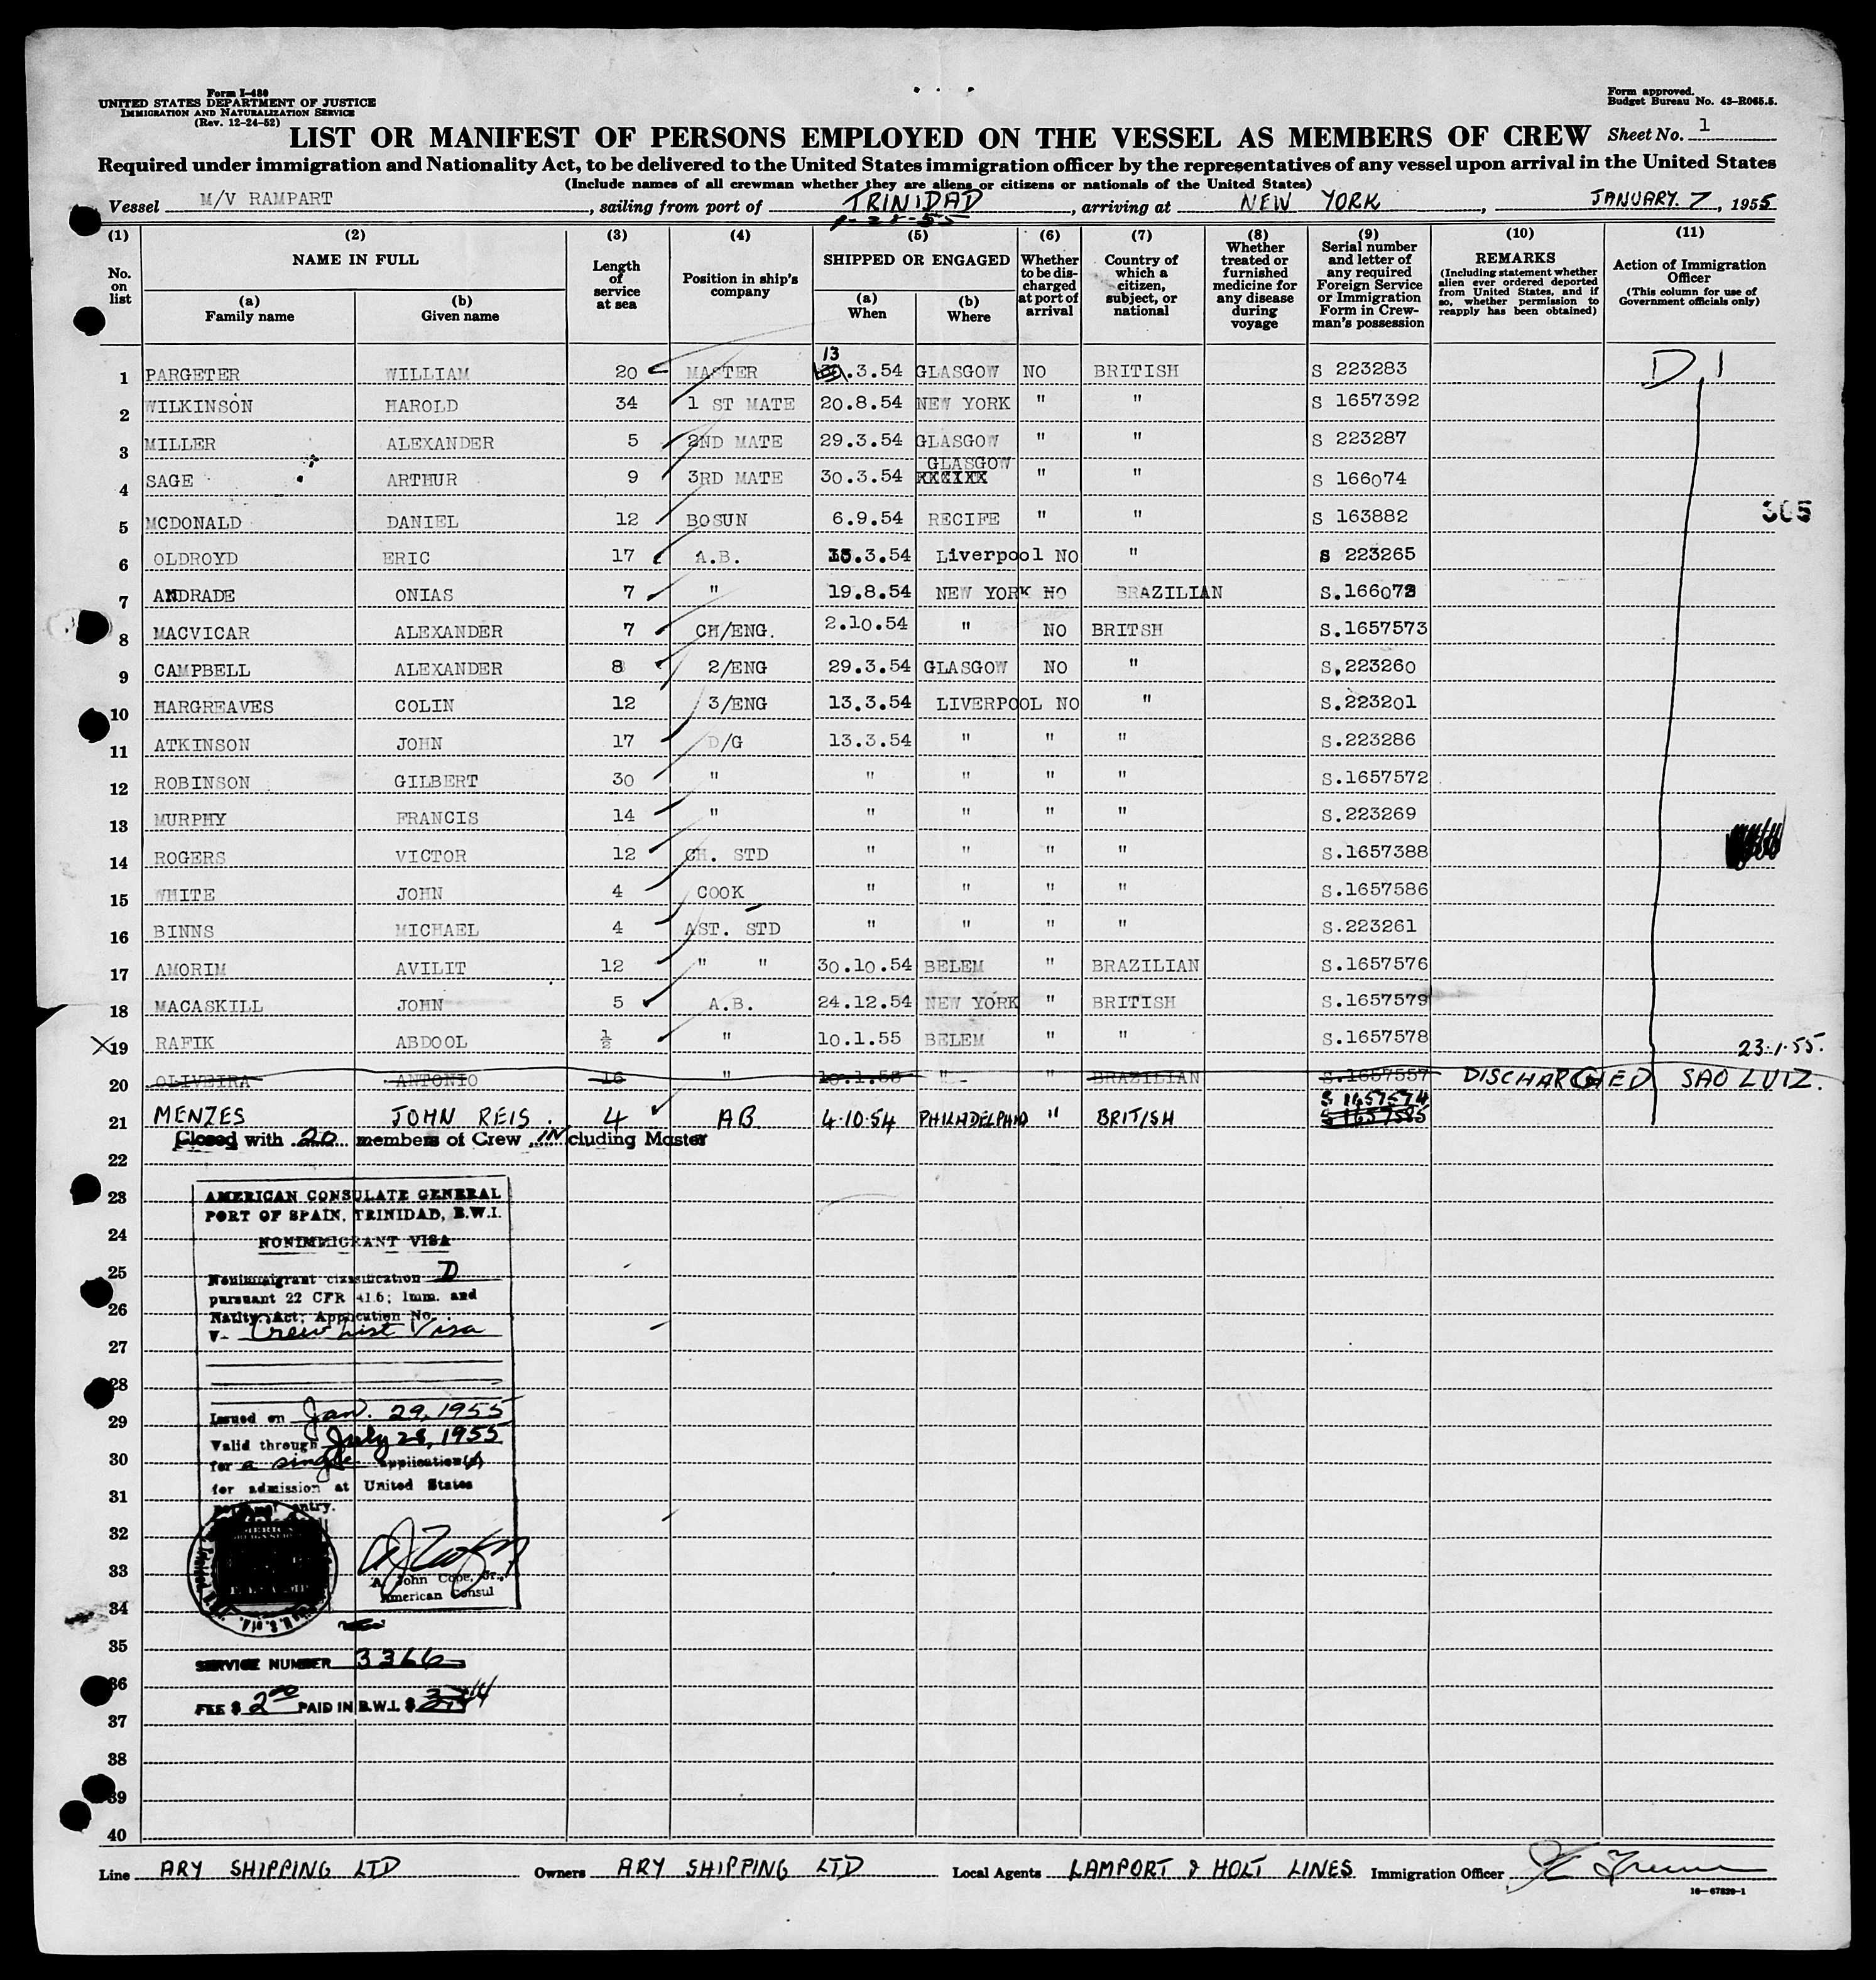 Form I-480
UNITED STATES DEPARTMENT OF JUSTICE
IMMIGRATION AND NATURALIZATION SERVICE
(Rev. 12-24-52)
Form approved.
Budget Bureau No. 43-R065.5.
LIST OR MANIFEST OF PERSONS EMPLOYED ON THE VESSEL AS MEMBERS OF CREW Sheet No. 1
Required under immigration and Nationality Act, to be delivered to the United States immigration officer by the representatives of any vessel upon arrival in the United States
(Include names of all crewman whether they are aliens or citizens or nationals of the United States)
Vessel M/V RAMPART, sailing from port of TRINIDAD, arriving at NEW YORK, JANUARY 7, 1955
1-28-55
(1) No. on list
(2) NAME IN FULL (a) Family name (b) Given name
(3) Length of service at sea
(4) Position in ship's company
(5) SHIPPED OR ENGAGED (a) When (b) Where
(6) Whether to be discharged at port of arrival
(7) Country of which a citizen, subject, or national
(8) Whether treated or furnished medicine for any disease during voyage
(9) Serial number and letter of any required Foreign Service or Immigration Form in Crewman's possession
(10) REMARKS (Including statement whether alien ever ordered deported from United States, and if so, whether permission to reapply has been obtained)
(11) Action of Immigration Officer (This column for use of Government officials only)
1 PARGETER WILLIAM 20 MASTER 13.3.54 GLASGOW NO BRITISH S 223283 D 1
2 WILKINSON HAROLD 34 1 ST MATE 20.8.54 NEW YORK " " S 1657392
3 MILLER ALEXANDER 5 2ND MATE 29.3.54 GLASGOW " " S 223287
4 SAGE ARTHUR 9 3RD MATE 30.3.54 GLASGOW " " S 166074
5 MCDONALD DANIEL 12 BOSUN 6.9.54 RECIFE " " S 163882 305
6 OLDROYD ERIC 17 A.B. .3.54 Liverpool NO " S 223265
7 ANDRADE ONIAS 7 " 19.8.54 NEW YORK NO BRAZILIAN S.166073
8 MACVICAR ALEXANDER 7 CH/ENG. 2.10.54 " NO BRITSH S.1657573
9 CAMPBELL ALEXANDER 8 2/ENG 29.3.54 GLASGOW NO " S.223260
10 HARGREAVES COLIN 12 3/ENG 13.3.54 LIVERPOOL NO " S.223201
11 ATKINSON JOHN 17 D/G 13.3.54 " " " S.223286
12 ROBINSON GILBERT 30 " " " " " S.1657572
13 MURPHY FRANCIS 14 " " " " " S.223269
14 ROGERS VICTOR 12 CH. STD " " " " S.1657388
15 WHITE JOHN 4 COOK " " " " S.1657586
16 BINNS MICHAEL 4 AST. STD " " " " S.223261
17 AMORIM AVILIT 12 " " 30.10.54 BELEM " BRAZILIAN S.1657576
18 MACASKILL JOHN 5 A.B. 24.12.54 NEW YORK " BRITISH S.1657579
X19 RAFIK ABDOOL ½ " 10.1.55 BELEM " " S.1657578
23.1.55.
20 OLIVEIRA ANTONIO 16 " 10.1.55 " " BRAZILIAN S.1657557 DISCHARGED SAO LUIZ.
S 1657574
21 MENZES JOHN REIS. 4 AB 4.10.54 PHILADELPHIA " BRITISH S 1657585
Closed with 20 members of Crew including Master
22
23
24
25
26
27
28
29
30
31
32
33
34
35
36
37
38
39
40
AMERICAN CONSULATE GENERAL
PORT OF SPAIN, TRINIDAD, B.W.I.
NONIMMIGRANT VISA
Nonimmigrant classification D
pursuant 22 CFR 41.6; Imm. and
Natlty. Act; Application No.
V- Crew List Visa
Issued on Jan. 29, 1955
Valid through July 28, 1955
for a single application(s)
for admission at United States
entry.
A. John Cope, Jr.,
American Consul
SERVICE NUMBER 3366
FEE $ 2.00 PAID IN B.W.I. $
Line ARY SHIPPING LTD Owners ARY SHIPPING LTD Local Agents LAMPORT & HOLT LINES Immigration Officer
16-67820-1